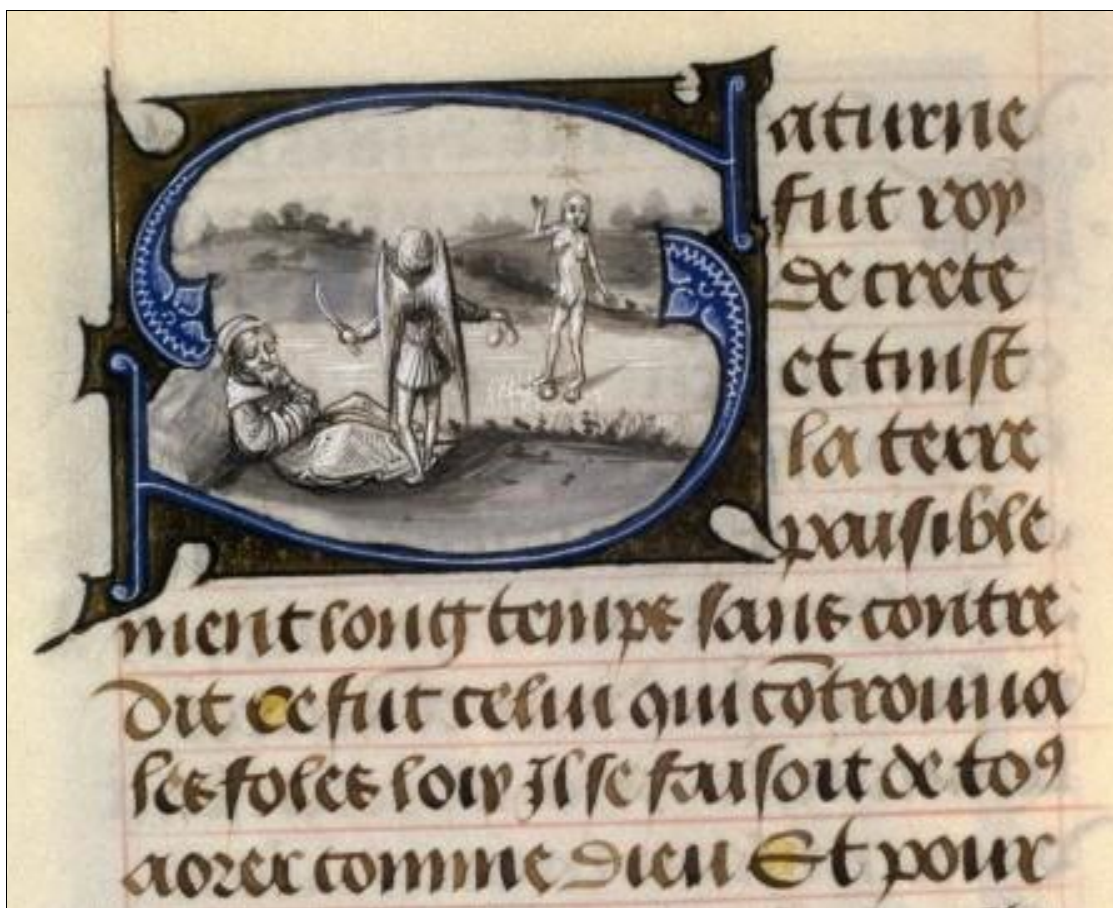 Saturne
fut roy
de crete
et tinst
la terre
paisible
ment long temps sans contre
dit Ce fut celui qui cōtrouua
les foles loix Il se faisoit de toꝰ
aorer comme dieu Et pour